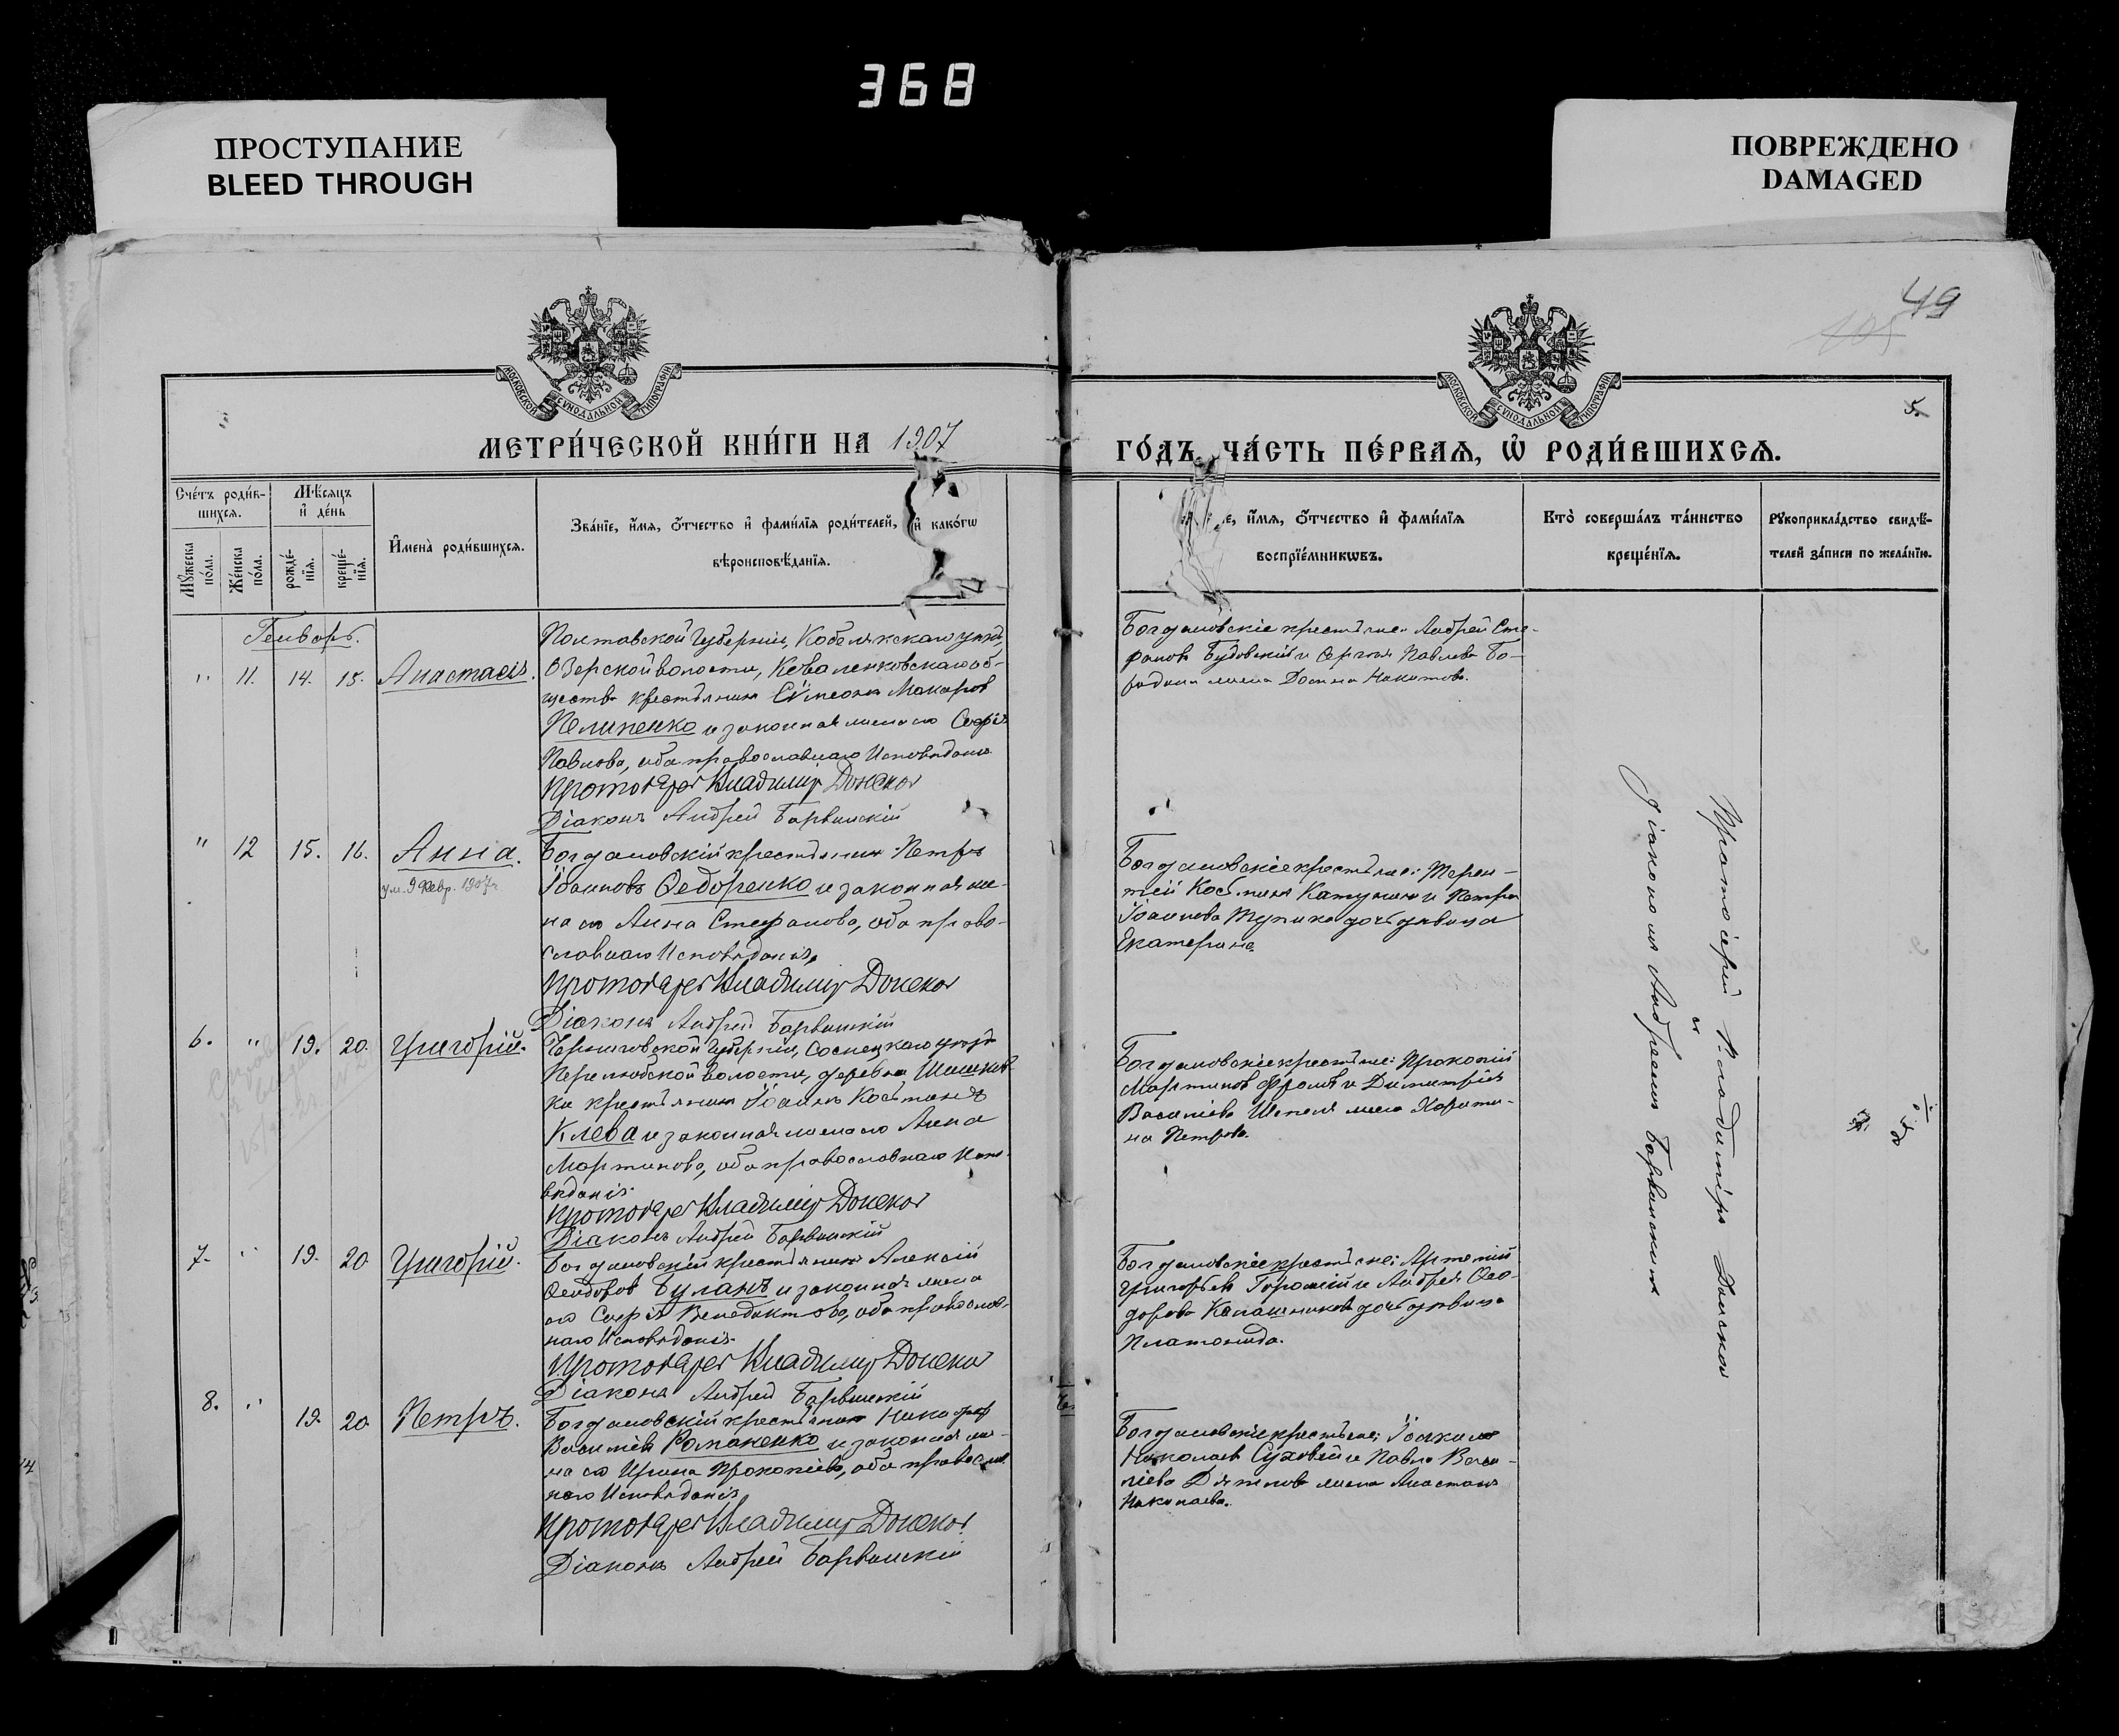 368
ПРОСТУПАНИЕ
BLEED THROUGH
ПОВРЕЖДЕНО
DAMAGED
49
105
5.
МОСКОВСКОЙ СУНОДАЛЬНОЙ ТИПОГРАФІИ
МОСКОВСКОЙ СУНОДАЛЬНОЙ ТИПОГРАФІИ
МЕТРИ́ЧЕСКОЙ КНИ́ГИ НА 1907
ГО́ДЪ, ЧА́СТЬ ПЕ́РВАѦ, Ѡ҆ РОДИ́ВШИХСѦ.
Сче́тъ роди́в-
шихсѧ.
Мѣ́сѧцъ
и҆ де́нь
Мꙋ́жеска
по́ла.
Же́нска
по́ла.
рожде́-
нїѧ.
креще́-
нїѧ.
И҆мена̀ роди́вшихсѧ.
Зва́нїе, и҆́мѧ, ѻ҆́тчество и҆ фами́лїѧ роди́телей, и҆ како́гѡ
вѣроисповѣ́данїѧ.
е, и҆́мѧ, ѻ҆́тчество и҆ фами́лїѧ
воспрїе́мникѡвъ.
Кто̀ соверша́лъ та́инство
креще́нїѧ.
Рꙋкоприкла́дство свидѣ́-
телей за́писи по жела́нїю.
Генварь.
" 11. 14. 15. Анастасія.
Полтавской Губерніи, Кобелякскаго уѣзда,
Озерской волости, Коваленковскаго об-
щества крестьянинъ Сѵмеонъ Макаровъ
Пелипенко и законная жена его Софія
Павлова, оба православнаго Исповѣданія
Протоіерей Владимир Донской
Діаконъ Андрей Барвинскій
Богдановскіе крестьяне: Андрей Сте-
фановъ Будовскій и Сергія Павлова Бо-
родина жена Домна Никитова.
" 12 15. 16. Анна.
ум. 9 Февр. 1907 г.
Богдановскій крестьянинъ Петръ
Іоанновъ Ѳедоренко и законная же-
на его Анна Стефанова, оба право-
славнаго Исповѣданія.
Протоіерей Владимир Донской
Діаконъ Андрей Барвинскій
Богдановскіе крестьяне: Терен-
тій Косьминъ и Петра
Іоаннова Тупика дочь дѣвица
Екатерина.
6. " 19. 20. Григорій.
Черниговской Губерніи, Сосницкаго уѣзда
Перелюбской волости, деревни
ки крестьянинъ Іоаннъ Косьминъ
Клева и законная жена его Анна
Мартинова, оба православнаго Испо-
вѣданія.
Протоіерей Владимир Донской
Діаконъ Андрей Барвинскій
Богдановскіе крестьяне: Прокопій
Мартиновъ Фроловъ и Димитрія
Василіева Шпеля жена Харити-
на Петрова.
7. " 19. 20 Григорій.
Богдановскій крестьянинъ Алексій
Ѳеодоровъ Буланъ и законная жена
его Софія Венедиктова, оба православ-
наго Исповѣданія.
Протоіерей Владимир Донской
Діаконъ Андрей Барвинскій
Богдановскіе крестьяне: Артемій
Григорьевъ и Андрея Ѳео-
дорова Калашникова дочь дѣвица
Платонида.
8. " 19. 20 Петръ.
Богдановскій крестьянинъ Никифоръ
Василіевъ Романенко и законная же-
на его Ирина Прокопіева, оба православ
наго Исповѣданія
Протоіерей Владимир Донской
Діаконъ Андрей Барвинскій
Богдановскіе крестьяне: Іоакимъ
Николаевъ Суховей и Павла Васи-
ліева Дятлова жена Анастасія
Николаева.
Протоіерей Владиміръ Донской
съ
Діакономъ Андреемъ Барвинскимъ